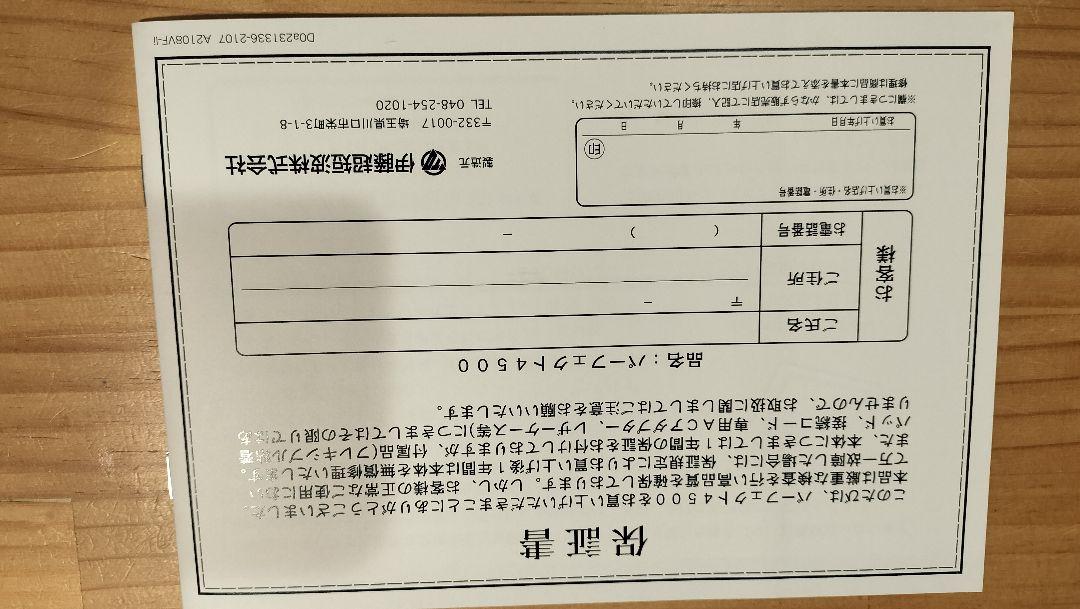 保証書
このたびは、パーフェクト４５００をお買い上げいただきまことにありがとうございました。
本品は厳重な検査を行い高品質を確保しております。しかし、お客様の正常なご使用において
万一故障した場合には、保証規定によりお買い上げ後１年間は本体を無償修理いたします。
また、本体につきましては１年間の保証をお付けしておりますが、付属品(フレキシブル粘着
パッド、接続コード、専用ＡＣアダプター、レザーケース等)につきましてはその限りではあ
りませんので、お取扱に関しましてはご注意をお願いいたします。
品名：パーフェクト４５００
お客様
ご氏名
ご住所 〒 －
お電話番号 ( ) －
※お買い上げ店名・住所・電話番号
印
お買い上げ年月日 年 月 日
※欄につきましては、かならず販売店にて記入、捺印していただいてください。
修理は商品に本書を添えてお買い上げ店にお持ちください。
製造元 伊藤超短波株式会社
〒332-0017 埼玉県川口市栄町3-1-8
TEL 048-254-1020
D0a231336-2107 A2108VF-Ii